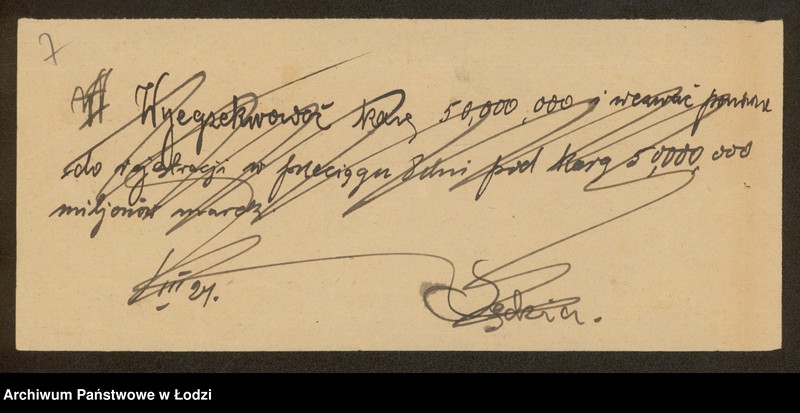 7
Wyegzekwować karę 50,000,000 i wezwać
do rejestracji w przeciągu 8 dni pod karą 50,000,000
miljonów marek.
III 24.
Sędzia.
Archiwum Państwowe w Łodzi